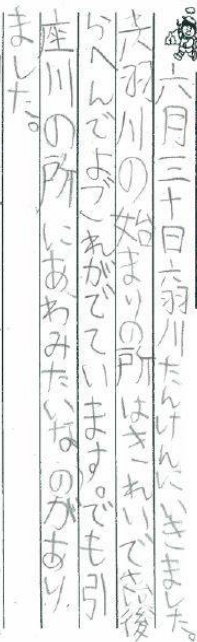 六月三十日六羽川たんけんにいきました。
六羽川の始まりの所はきれいでさい後
らへんでよごれがでています。でも引
座川の所にあわみたいなのがあり
ました。